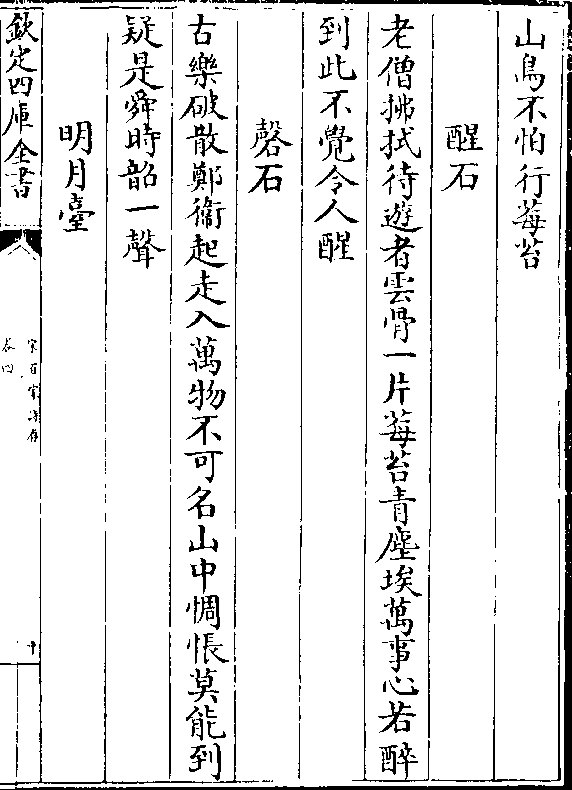 山鳥不怕行莓苔
醒石
老僧拂拭待遊者雲骨一片莓苔青塵埃萬事心若醉
到此不覺令人醒
磬石
古樂破散鄭衞起走入萬物不可名山中惆悵莫能到
疑是舜時韶一聲
明月臺
欽定四庫全書
宋百家詩存
卷四
十